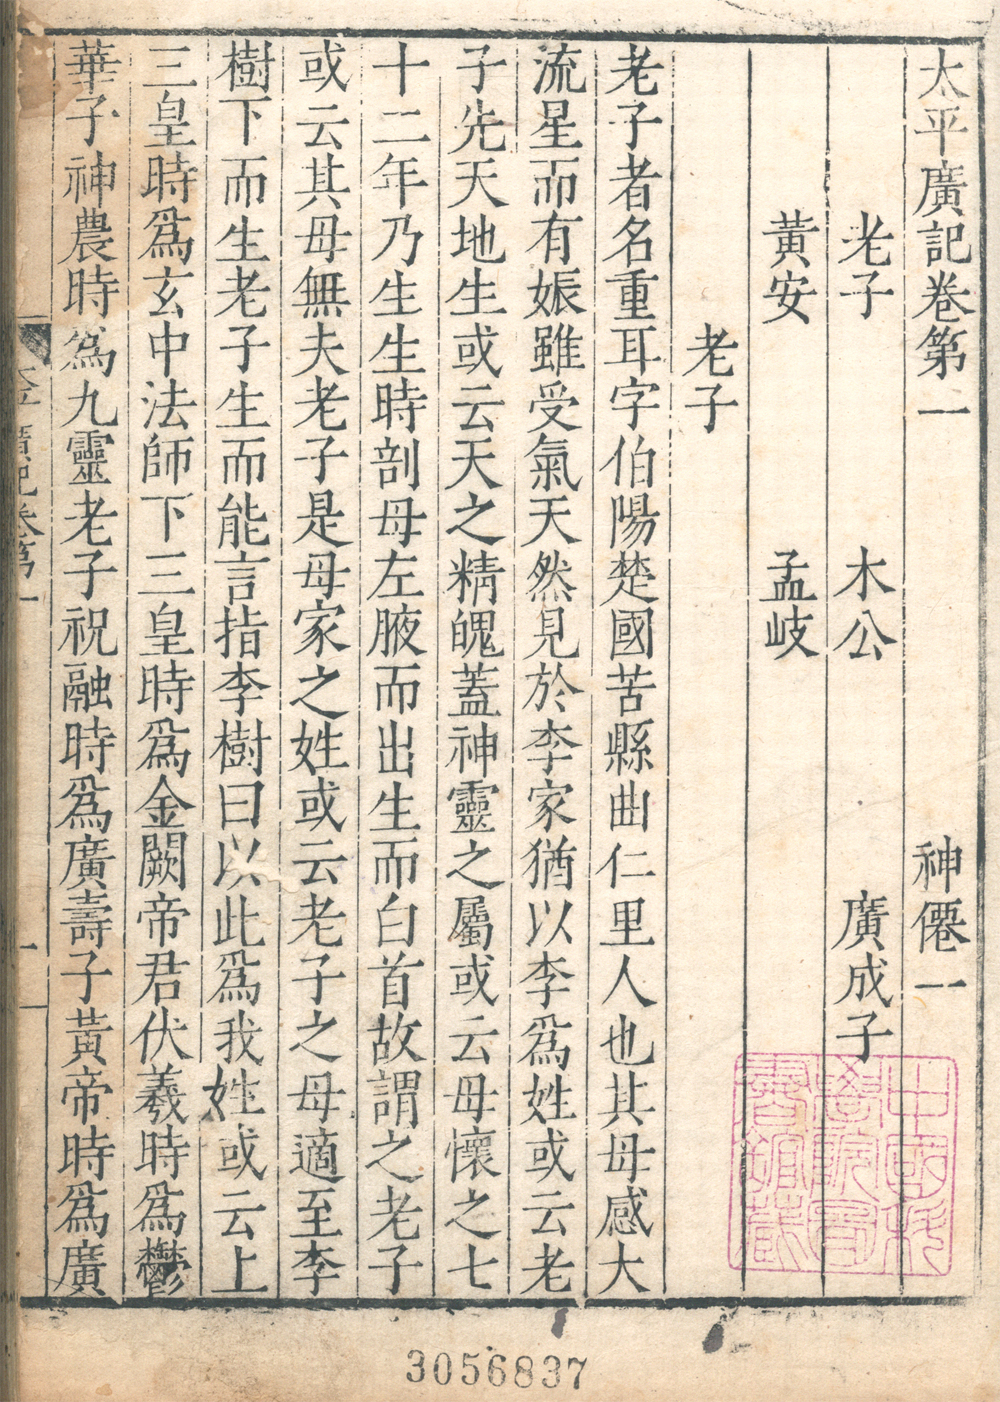 太平廣記卷第一　神僊一
老子　木公　廣成子
黃安　孟岐
老子
老子者名重耳字伯陽楚國苦縣曲仁里人也其母感大
流星而有娠雖受氣天然見於李家猶以李爲姓或云老
子先天地生或云天之精魄蓋神靈之屬或云母懷之七
十二年乃生生時剖母左腋而出生而白首故謂之老子
或云其母無夫老子是母家之姓或云老子之母適至李
樹下而生老子生而能言指李樹曰以此爲我姓或云上
三皇時爲玄中法師下三皇時爲金闕帝君伏羲時爲鬱
華子神農時爲九靈老子祝融時爲廣壽子黃帝時爲廣
廣記卷第一
一
中國科學院圖書館藏
3056837